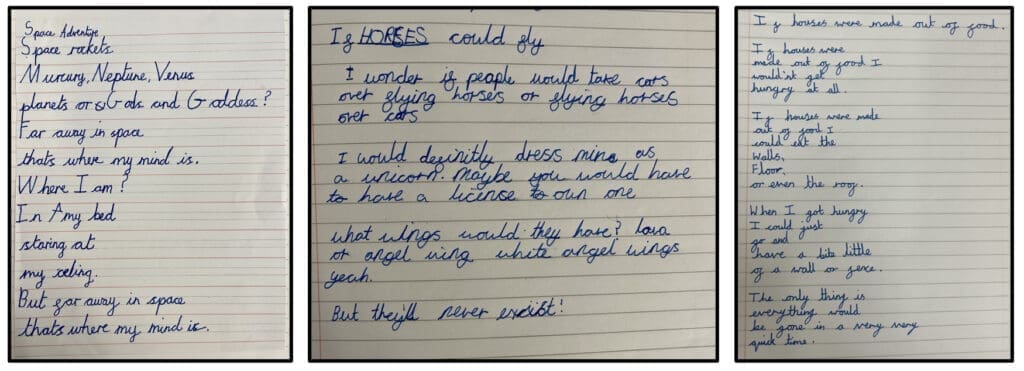 Space Adventure
Space rockets
Murcury, Neptune, Venus
planets or Gods and Goddess?
Far away in space
thats where my mind is.
Where I am?
In my bed
staring at
my celing.
But far away in space
thats where my mind is.
If HORSES could fly
I wonder if people would take cars
over flying horses or flying horses
over cars
I would definitly dress mine as
a unicorn. Maybe you would have
to have a license to own one
what wings would they have? lava
or angel wing white angel wings
yeah.
But they'll never excisit!
If houses were made out of food.
If houses were
made out of food I
wouldn't get
hungry at all.
If houses were made
out of food I
could eat the
Walls,
Floor,
or even the roof.
When I got hungry
I could just
go and
have a bite little
of a wall or fence.
The only thing is
everything would
be gone in a very very
quick time.